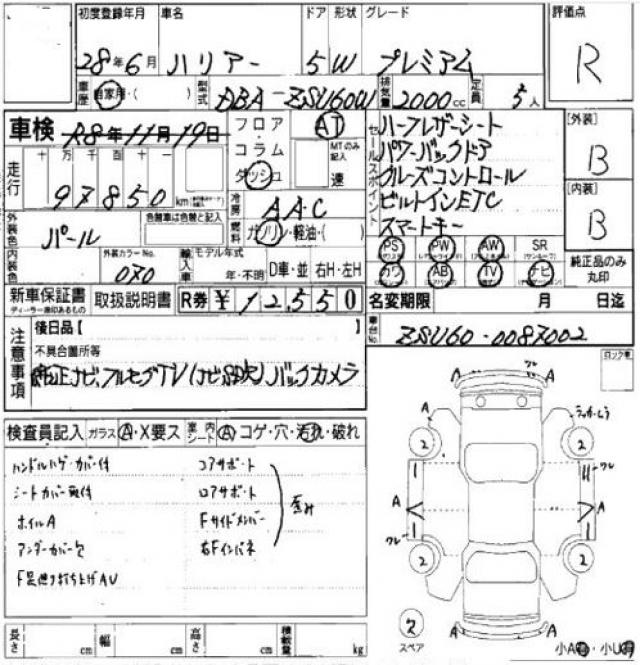 初度登録年月 車名 ドア 形状 グレード 評価点
28年6月 ハリアー 5 W プレミアム R
車歴 自家用・( ) 型式 DBA-ZSU60W 排気量 2000cc 定員 5人
車検 R8年11月19日 フロア・コラム・ダッシュ AT MTのみ記入 速
セールスポイント
ハーフレザーシート
パワーバックドア
クルーズコントロール
ビルトインETC
スマートキー
[外装] B
[内装] B
走行 十 万 千 百 十 一
97850 km
冷房 AAC
燃料 ガソリン・軽油・( )
外装色 パール 色替車は色替と記入
内装色 外装カラーNo. 070 輸入車 モデル年式 年・不明 D車・並 右H・左H
PS PW AW SR
カワ AB TV ナビ
純正品のみ丸印
新車保証書 ディーラー捺印あるもの 取扱説明書 R券 ¥12,550 名変期限 月 日迄
車台No. ZSU60-0087002
注意事項 後日品【 】
不具合箇所等
純正ナビ、フルセグTV(ナビSD欠)バックカメラ
ロック有
検査員記入 ガラス A・X要ス 室内シート A コゲ・穴・汚れ・破れ
ハンドルハゲ・カバー付 コアサポート
シートカバー取付 ロアサポート
ホイルA Fサイドメンバー
アンダーカバー欠 右Fインパネ
歪み
F足廻り打ち上げAU
A A ワレ A
2 2
A A ワレ
ワレ 2 2
2 スペア A A
小A有・小U有
長さ cm 幅 cm 高さ cm 積載量 kg